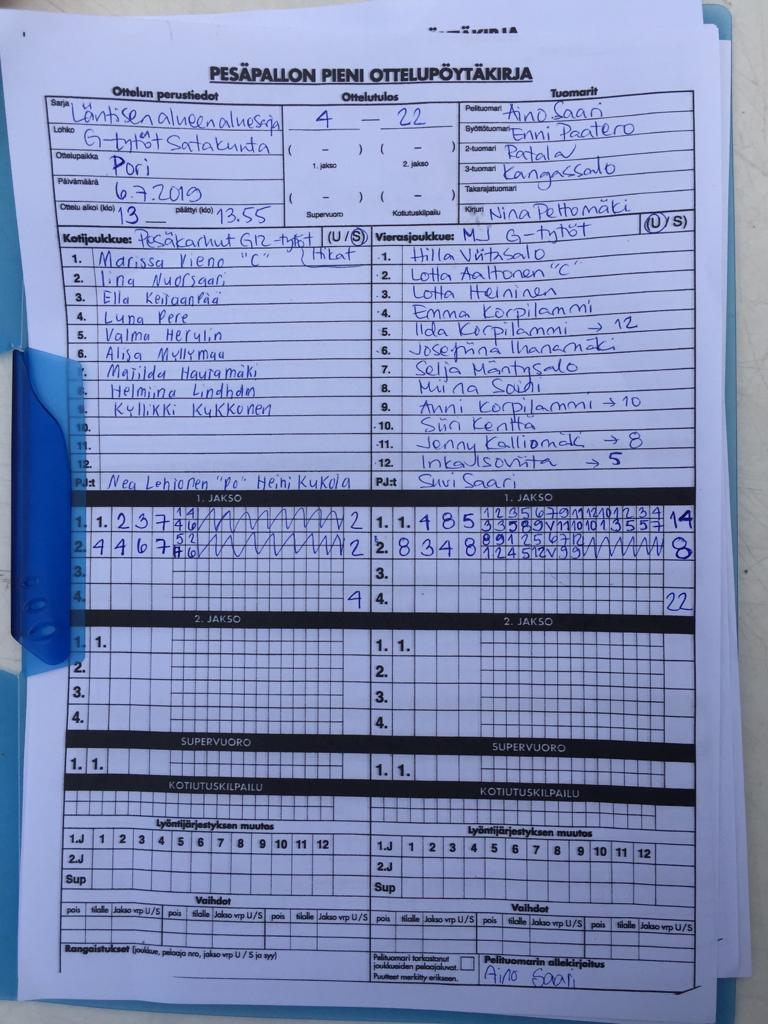 PESÄPALLON PIENI OTTELUPÖYTÄKIRJA
Ottelun perustiedot Ottelutulos Tuomarit
Sarja Läntisen alueen aluesarja 4 – 22 Pelituomari Aino Saari
Lohko G-tytöt Satakunta ( – ) ( – ) Syöttötuomari Enni Paatero
Ottelupaikka Pori 1. jakso 2. jakso 2-tuomari Ratala
Päivämäärä 6.7.2019 ( – ) ( – ) 3-tuomari Kangassalo
Takarajatuomari
Ottelu alkoi (klo) 13 päättyi (klo) 13.55 Supervuoro Kotiutuskilpailu Kirjuri Nina Peltomäki
Kotijoukkue: Pesäkarhut G12-tytöt (U / S) Vierasjoukkue: MJ G-tytöt (U / S)
Hikat
1. Marissa Vieno "C" 1. Hilla Viitasalo
2. Iina Nuorsaari 2. Lotta Aaltonen "C"
3. Ella 3. Lotta Heininen
4. Luna Pere 4. Emma Korpilammi
5. Valma Herulin 5. Ilda Korpilammi → 12
6. Alisa Myllymaa 6. Josefiina Ihanamäki
7. Matilda Hauramäki 7. Selja Mäntysalo
8. Helmiina Lindholm 8. Miina Saidi
9. Kyllikki Kukkonen 9. Anni Korpilammi → 10
10. 10. Siiri Kenttä
11. 11. Jenny Kalliomäki → 8
12. 12. Inka → 5
PJ:t Nea Lehtonen "PO" Heini Kukola PJ:t Suvi Saari
1. JAKSO 1. JAKSO
1. 1. 2 3 7 2 1. 1. 4 8 5 14
2. 4 4 6 7 2 2. 8 3 4 8 8
3. 3.
4. 4 4. 22
2. JAKSO 2. JAKSO
1. 1. 1. 1.
2. 2.
3. 3.
4. 4.
SUPERVUORO SUPERVUORO
1. 1. 1. 1.
KOTIUTUSKILPAILU KOTIUTUSKILPAILU
Lyöntijärjestyksen muutos Lyöntijärjestyksen muutos
1.J 1 2 3 4 5 6 7 8 9 10 11 12 1.J 1 2 3 4 5 6 7 8 9 10 11 12
2.J 2.J
Sup Sup
Vaihdot Vaihdot
pois tilalle Jakso vrp U/S pois tilalle Jakso vrp U/S pois tilalle Jakso vrp U/S pois tilalle Jakso vrp U/S pois tilalle Jakso vrp U/S pois tilalle Jakso vrp U/S
Rangaistukset (joukkue, pelaaja nro, jakso vrp U / S ja syy) Pelituomari tarkastanut joukkueiden pelaajaluvat. Puutteet merkitty erikseen. Pelituomarin allekirjoitus
Aino Saari